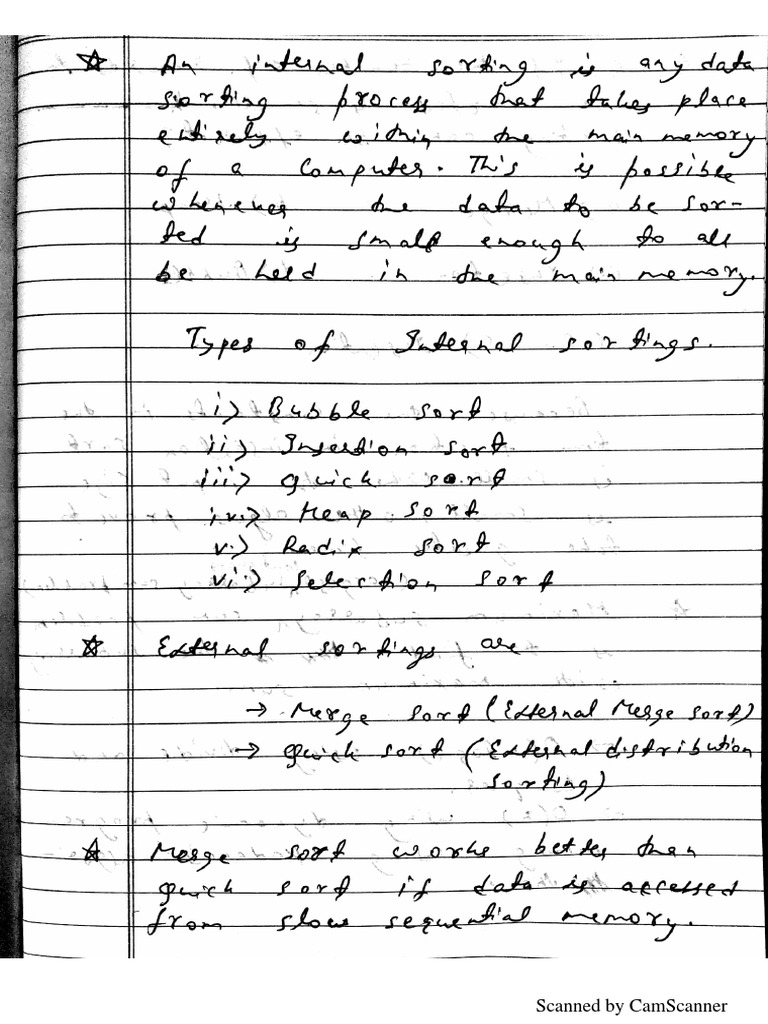 ☆ An internal sorting is any data
sorting process that takes place
entirely within the main memory
of a computer. This is possible
whenever the data to be sor-
ted is small enough to all
be held in the main memory.
Types of Internal sortings.
i) Bubble sort
ii) Insertion sort
iii) Quick sort
iv.) Heap sort
v.) Radix sort
vi.) Selection sort
☆ External sortings are
→ Merge sort (External Merge sort)
→ Quick sort (External distribution
sorting)
☆ Merge sort works better than
quick sort if data is accessed
from slow sequential memory.
Scanned by CamScanner